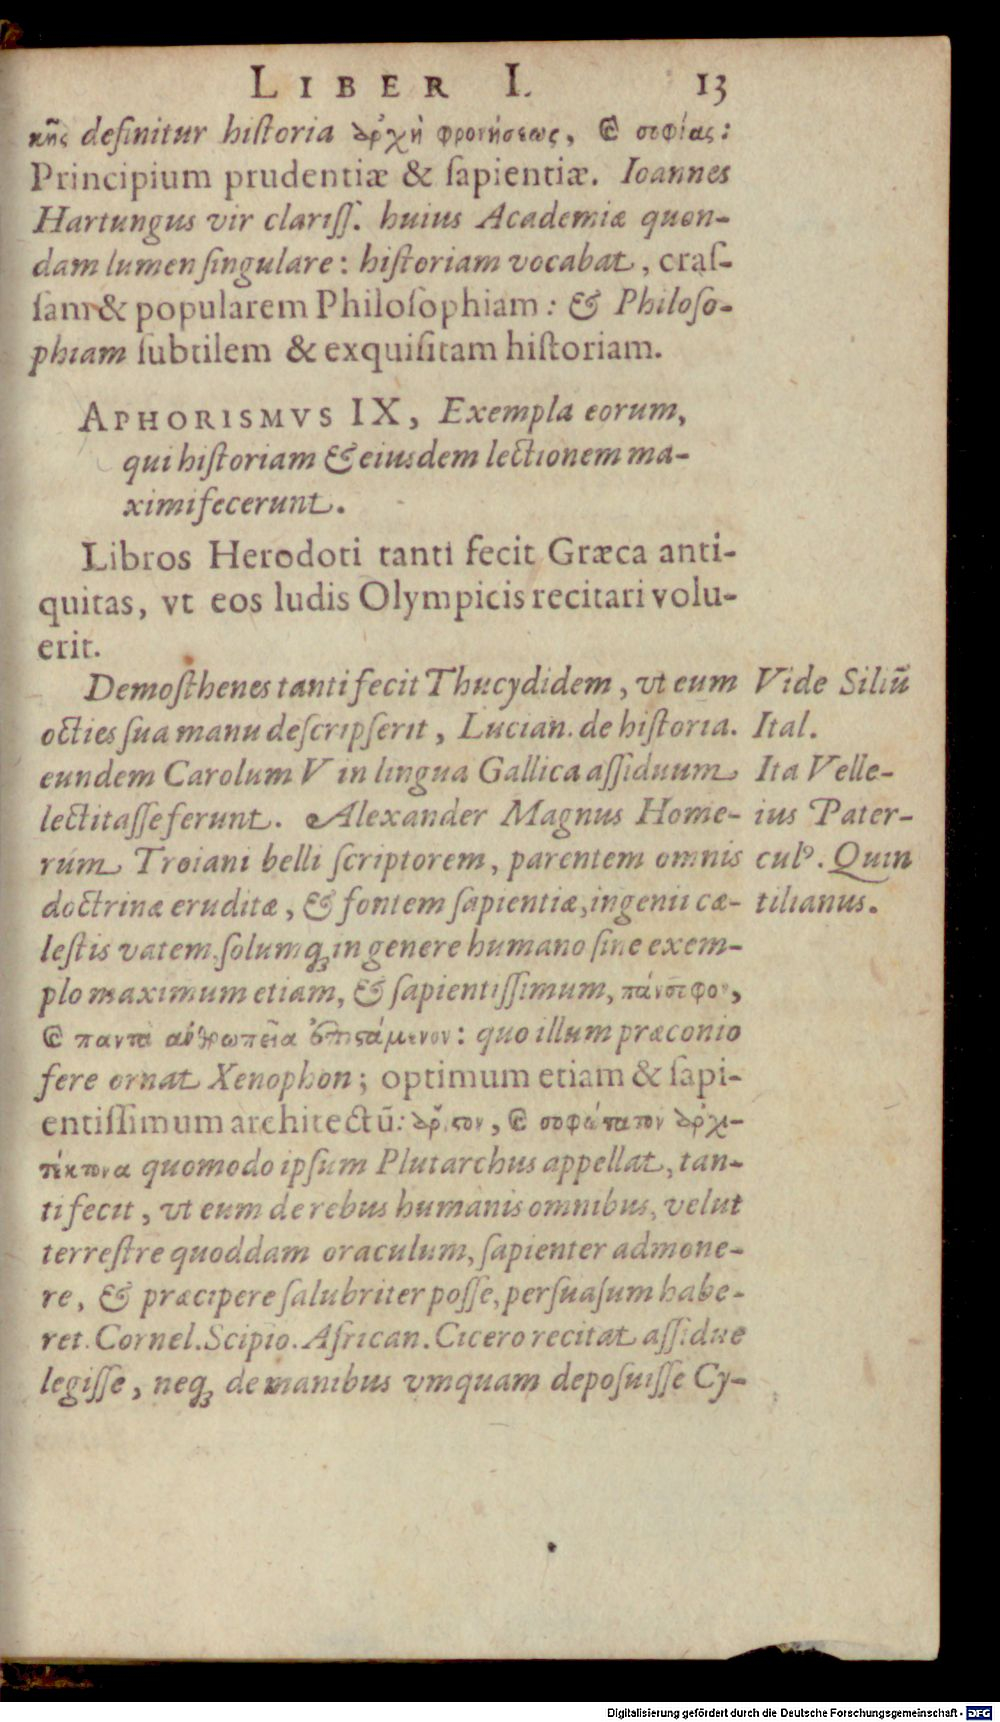 LIBER I. 13
κῆς definitur hiſtoria ἀρχὴ φρονήσεως, καὶ σοφίας:
Principium prudentiæ & ſapientiæ. Ioannes
Hartungus vir clariſſ. huius Academiæ quon-
dam lumen ſingulare: hiſtoriam vocabat, craſ-
ſam & popularem Philoſophiam: & Philoſo-
phiam ſubtilem & exquiſitam hiſtoriam.
APHORISMVS IX, Exempla eorum,
qui hiſtoriam & eiusdem lectionem ma-
ximi fecerunt.
Libros Herodoti tanti fecit Græca anti-
quitas, vt eos ludis Olympicis recitari volu-
erit.
Demoſthenes tanti fecit Thucydidem, vt eum
octies ſua manu deſcripſerit, Lucian. de hiſtoria.
eundem Carolum V in lingua Gallica aſſiduum
lectitaſſe ferunt. Alexander Magnus Home-
rum Troiani belli ſcriptorem, parentem omnis
doctrinæ eruditæ, & fontem ſapientiæ, ingenii cæ-
leſtis vatem, ſolumq́; in genere humano ſine exem-
plo maximum etiam, & ſapientiſſimum, πάνσοφον,
καὶ παντα ἀνθρωπεῖα ἐπιστάμενον: quo illum præconio
fere ornat Xenophon; optimum etiam & ſapi-
entiſſimum architectũ: ἄριστον, καὶ σοφώτατον ἀρχι-
τέκτονα quomodo ipſum Plutarchus appellat, tan-
ti fecit, vt eum de rebus humanis omnibus, velut
terreſtre quoddam oraculum, ſapienter admone-
re, & præcipere ſalubriter poſſe, perſuaſum habe-
ret. Cornel. Scipio. African. Cicero recitat aſſidue
legiſſe, neq́; de manibus vmquam depoſuiſſe Cy-
Vide Siliũ
Ital.
Ita Velle-
ius Pater-
culꝰ. Quin
tilianus.
Digitalisierung gefördert durch die Deutsche Forschungsgemeinschaft - DFG